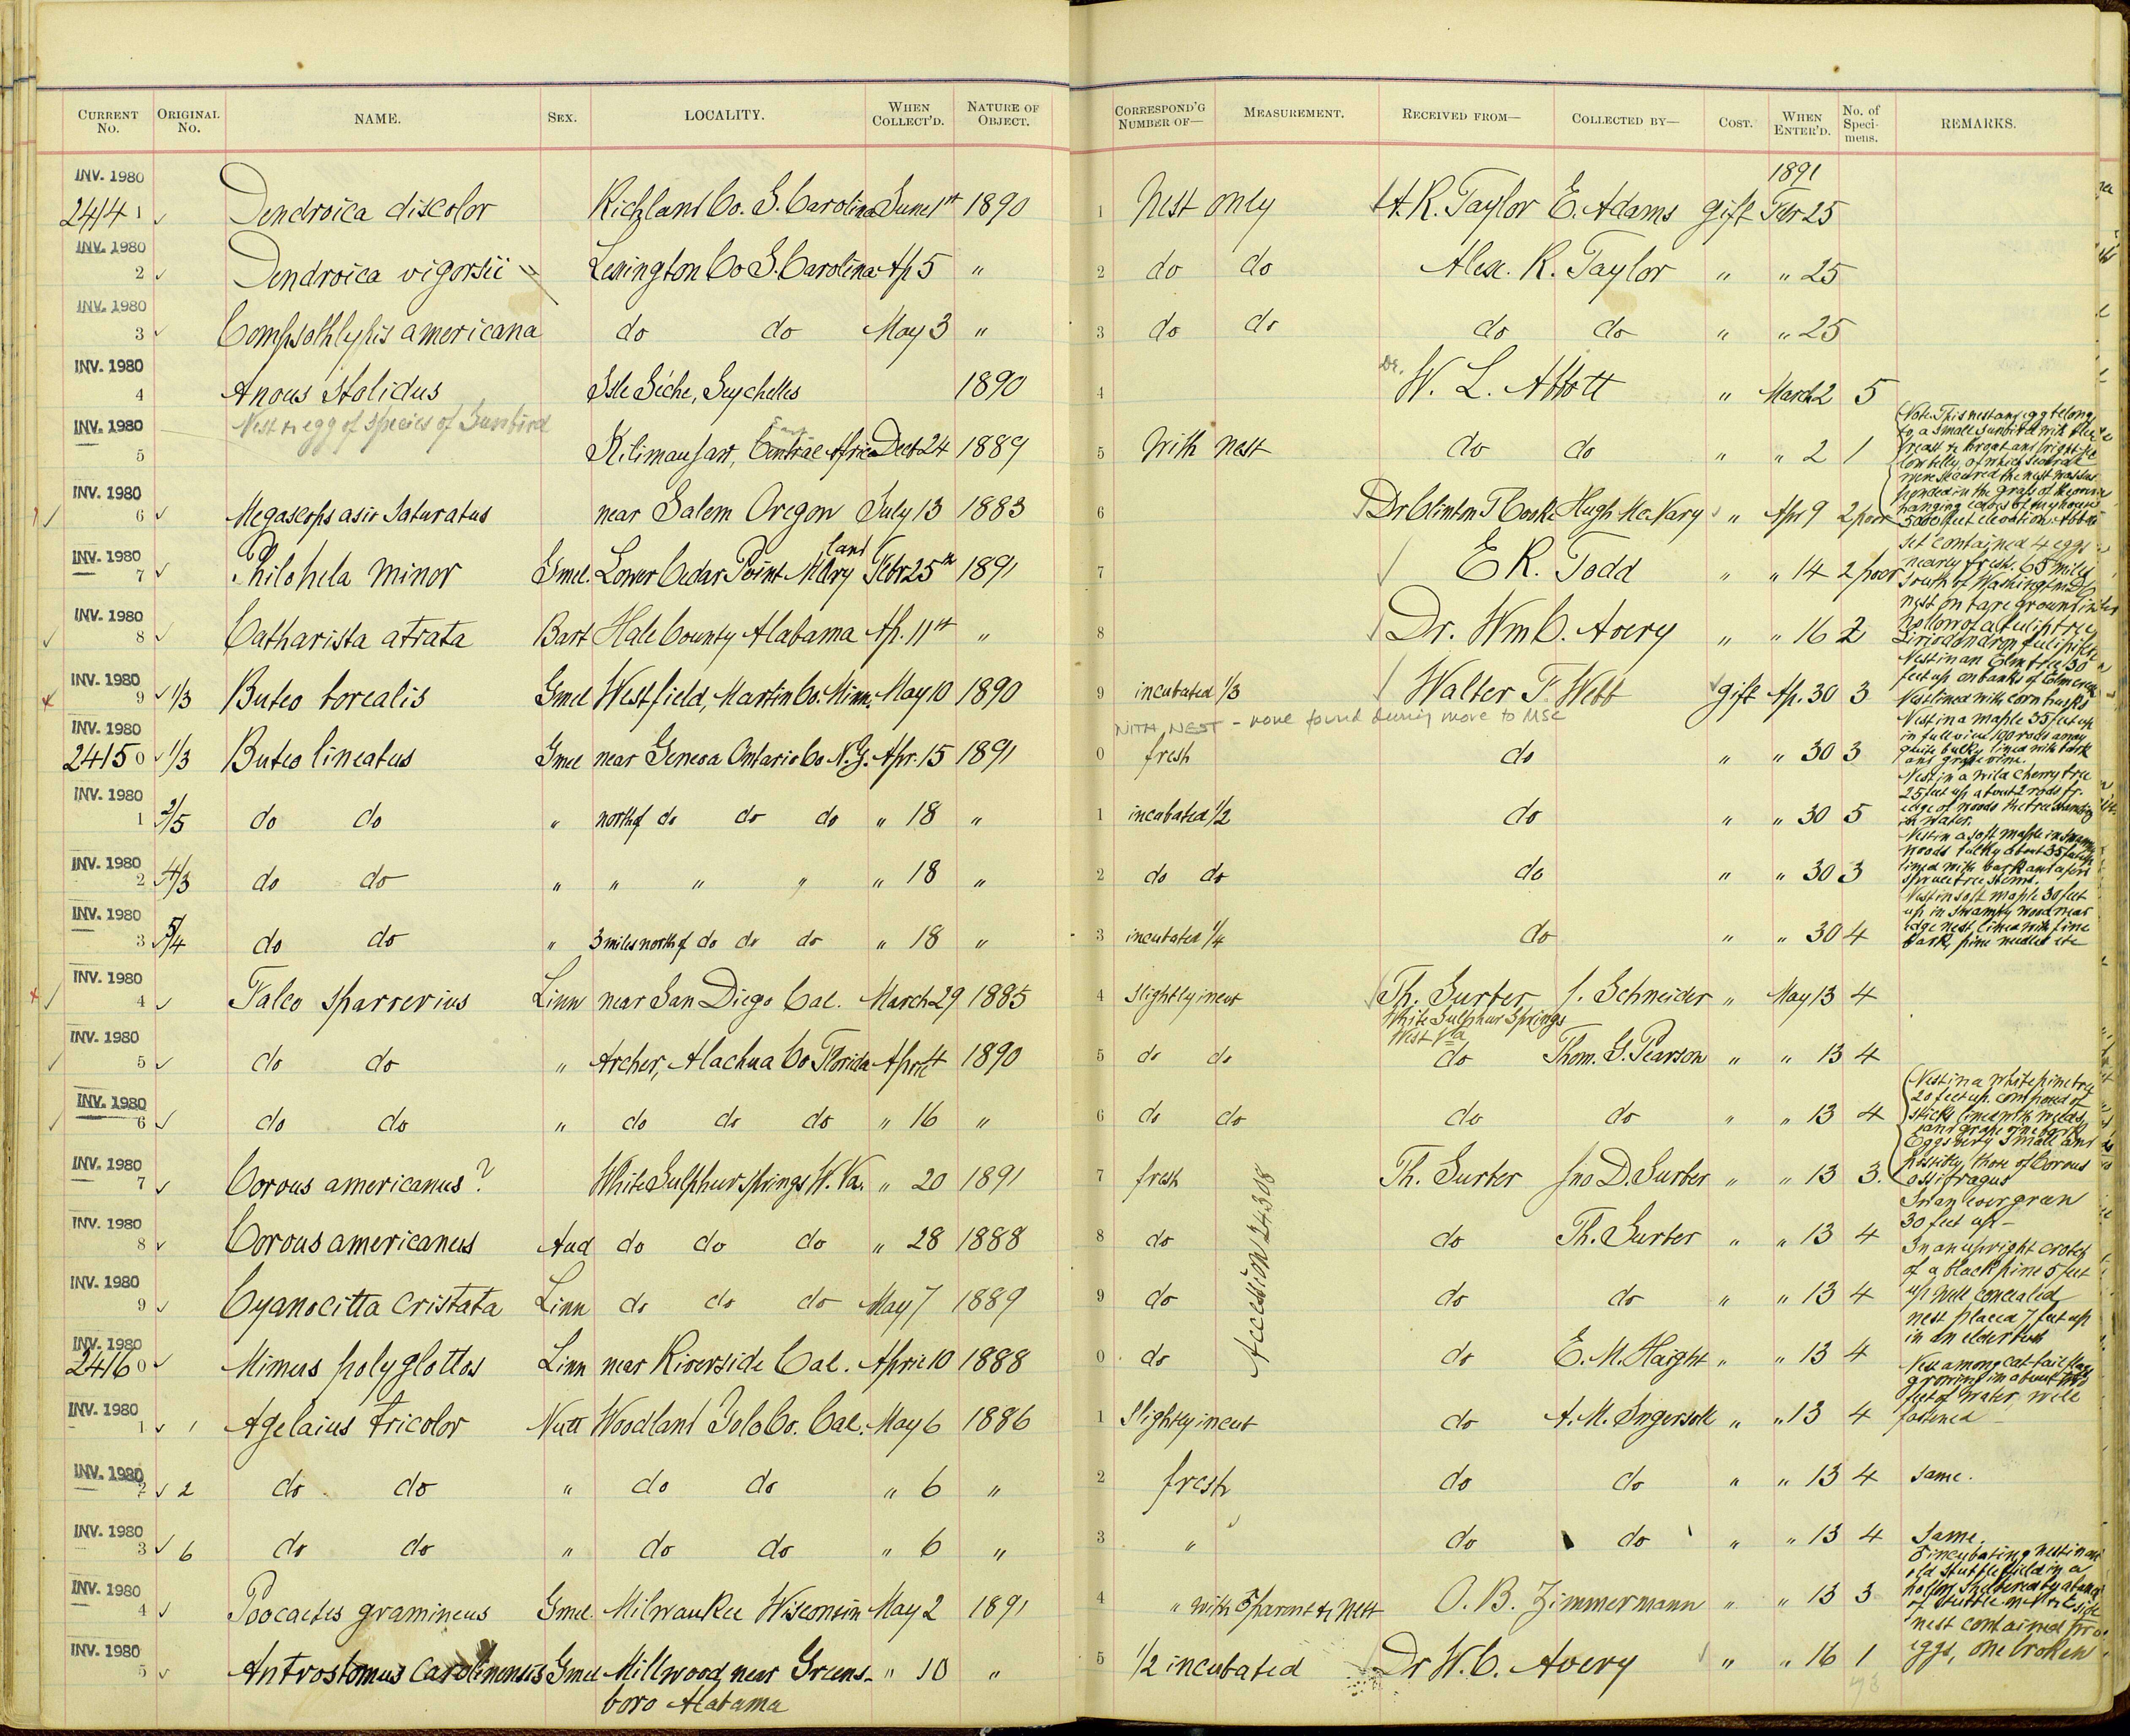 CURRENT No. ORIGINAL No. NAME. SEX. LOCALITY. WHEN COLLECT'D. NATURE OF OBJECT. CORRESPOND'G NUMBER OF— MEASUREMENT. RECEIVED FROM— COLLECTED BY— COST. WHEN ENTER'D. No. of Specimens. REMARKS.
1891
INV. 1980
2414 1 Dendroica discolor Richland Co. S. Carolina June 1st 1890 1 Nest only A. R. Taylor E. Adams gift Febr 25
INV. 1980
2 Dendroica vigorsii Lexington Co S. Carolina Ap 5 " 2 do do Alex. R. Taylor " " 25
INV. 1980
3 Compsothlypis americana do do May 3 " 3 do do do do " " 25
INV. 1980
4 Anous stolidus Isle Séche, Seychelles 1890 4 Dr. W. L. Abbott " March 2 5
Nest & egg of species of Sunbird
INV. 1980
5 Kilimanjaro, Central Africa Dec 24 1889 5 With nest do do " " 2 1 Note. This nest and egg belong to a small sunbird with
INV. 1980
6 Megascops asio saturatus near Salem Oregon July 13 1883 6 Dr Clinton T Cooke Hugh McNary " Apr 9 2 poor 5000 feet elevation Abbott
INV. 1980
7 Philohela minor Gmel. Lower Cedar Point Maryland Febr 25th 1891 7 E R. Todd " " 14 2 poor Set contained 4 eggs nearly fresh. 65 miles south of Washington DC nest on bare ground
INV. 1980
8 Catharista atrata Bart Hale County Alabama Ap. 11th " 8 Dr. Wm C. Avery " " 16 2 hollow of a tulip tree Liriodendron tulipifera
INV. 1980
9 1/3 Buteo borealis Gmel Westfield, Martin Co. Minn. May 10 1890 9 incubated 1/3 Walter F. Webb gift Ap. 30 3 Nest in an Elm tree 50 feet up on banks of Elm creek Nest lined with corn husks
WITH NEST - none found during move to MSC
INV. 1980
2415 0 1/3 Buteo lineatus Gmel near Geneva Ontario Co N.Y. Apr. 15 1891 0 fresh do " " 30 3 Nest in a maple 55 feet up in full view 100 rods away quite bulky lined with bark and grape vine.
INV. 1980
1 2/5 do do " north of do do do " 18 " 1 incubated 1/2 do " " 30 5 Nest in a wild cherry tree 25 feet up about 2 rods fr. edge of woods the tree standing in water.
INV. 1980
2 4/3 do do " " " " " 18 " 2 do do do " " 30 3 Nest in a soft maple in swampy woods bulky about 35 feet up lined with bark and a few spruce tree stems.
INV. 1980
3 5/4 do do " 3 miles north of do do do " 18 " 3 incubated 1/4 do " " 30 4 Nest in soft maple 30 feet up in swampy wood near edge nest lined with fine bark, pine needles etc
INV. 1980
4 Falco sparverius Linn near San Diego Cal. March 29 1885 4 Slightly incub Th. Surber J. Schneider " May 13 4
White Sulphur Springs
West Va
INV. 1980
5 do do " Archer, Alachua Co Florida April 4 1890 5 do do do Thom. G. Pearson " " 13 4
INV. 1980
6 do do " do do do " 16 " 6 do do do do " " 13 4
INV. 1980
7 Corvus americanus? White Sulphur Springs W. Va. " 20 1891 7 fresh Th. Surber Jno D. Surber " " 13 3 Nest in a white pine tree 20 feet up. composed of sticks lined with weeds and grape vine bark Eggs very small and possibly those of Corvus ossifragus
INV. 1980
8 Corvus americanus Aud do do do " 28 1888 8 do do Th. Surber " " 13 4 In an evergreen 30 feet up—
Accession 24308
INV. 1980
9 Cyanocitta cristata Linn do do do May 7 1889 9 do do do " " 13 4 In an upright crotch of a black pine 5 feet up well concealed
INV. 1980
2416 0 Mimus polyglottos Linn near Riverside Cal. April 10 1888 0 do do E. M. Haight " " 13 4 nest placed 7 feet up in an elderbush
INV. 1980
1 1 Agelaius tricolor Nutt Woodland Yolo Co. Cal. May 6 1886 1 Slightly incub do A. M. Ingersoll " " 13 4 Nest among cat-tail flags growing in about two feet of water, well fastened
INV. 1980
2 2 do do " do do " 6 " 2 fresh do do " " 13 4 Same.
INV. 1980
3 6 do do " do do " 6 " 3 " do do " " 13 4 Same.
INV. 1980
4 Poocaetes gramineus Gmel. Milwaukee Wisconsin May 2 1891 4 " with parent & nest O. B. Zimmermann " " 13 3 incubating nest in an old stubble field in a hollow sheltered by
INV. 1980
5 Antrostomus carolinensis Gmel Millwood near Greens- " 10 " 5 1/2 incubated Dr W. C. Avery " " 16 1 nest contained two eggs, one broken
boro Alabama